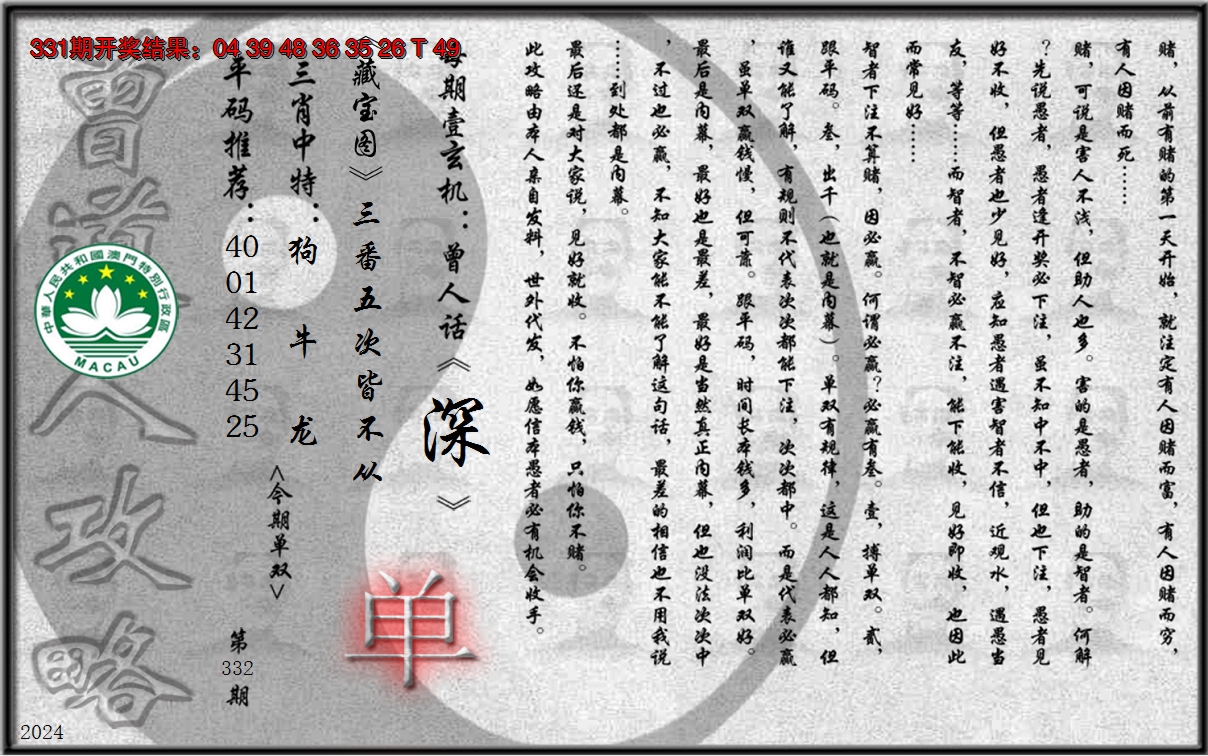 331期开奖结果：04 39 48 36 35 26 T 49
赌，从前有赌的第一天开始，就注定有人因赌而富，有人因赌而穷，
有人因赌而死……
赌，可说是害人不浅，但助人也多。害的是愚者，助的是智者。何解
？先说愚者，愚者逢开奖必下注，虽不知中不中，但也下注，愚者见
好不收，但愚者也少见好，应知愚者遇害智者不信，近观水，遇愚当
友，等等……而智者，不智必赢不注，能下能收，见好即收，也因此
而常见好……
智者下注不算赌，因必赢。何谓必赢？必赢有叁。壹，搏单双。贰，
跟平码。叁，出千（也就是内幕）。单双有规律，这是人人都知，但
谁又能了解，有规则不代表次次都能下注，次次都中。而是代表必赢
，虽单双赢钱慢，但可靠。跟平码，时间长本钱多，利润比单双好。
最后是内幕，最好也是最差，最好是当然真正内幕，但也没法次次中
，不过也必赢，不知大家能不能了解这句话，最差的相信也不用我说
……到处都是内幕。
最后还是对大家说，见好就收。不怕你赢钱，只怕你不赌。
此攻略由本人亲自发料，世外代发，如愿信本愚者必有机会收手。
每期壹玄机：曾人话《深》
《藏宝图》三番五次皆不从
三肖中特：狗 牛 龙
平码推荐：40 01 42 31 45 25
<今期单双>
单
第332期
曾道人攻略
中華人民共和國澳門特別行政區
MACAU
2024